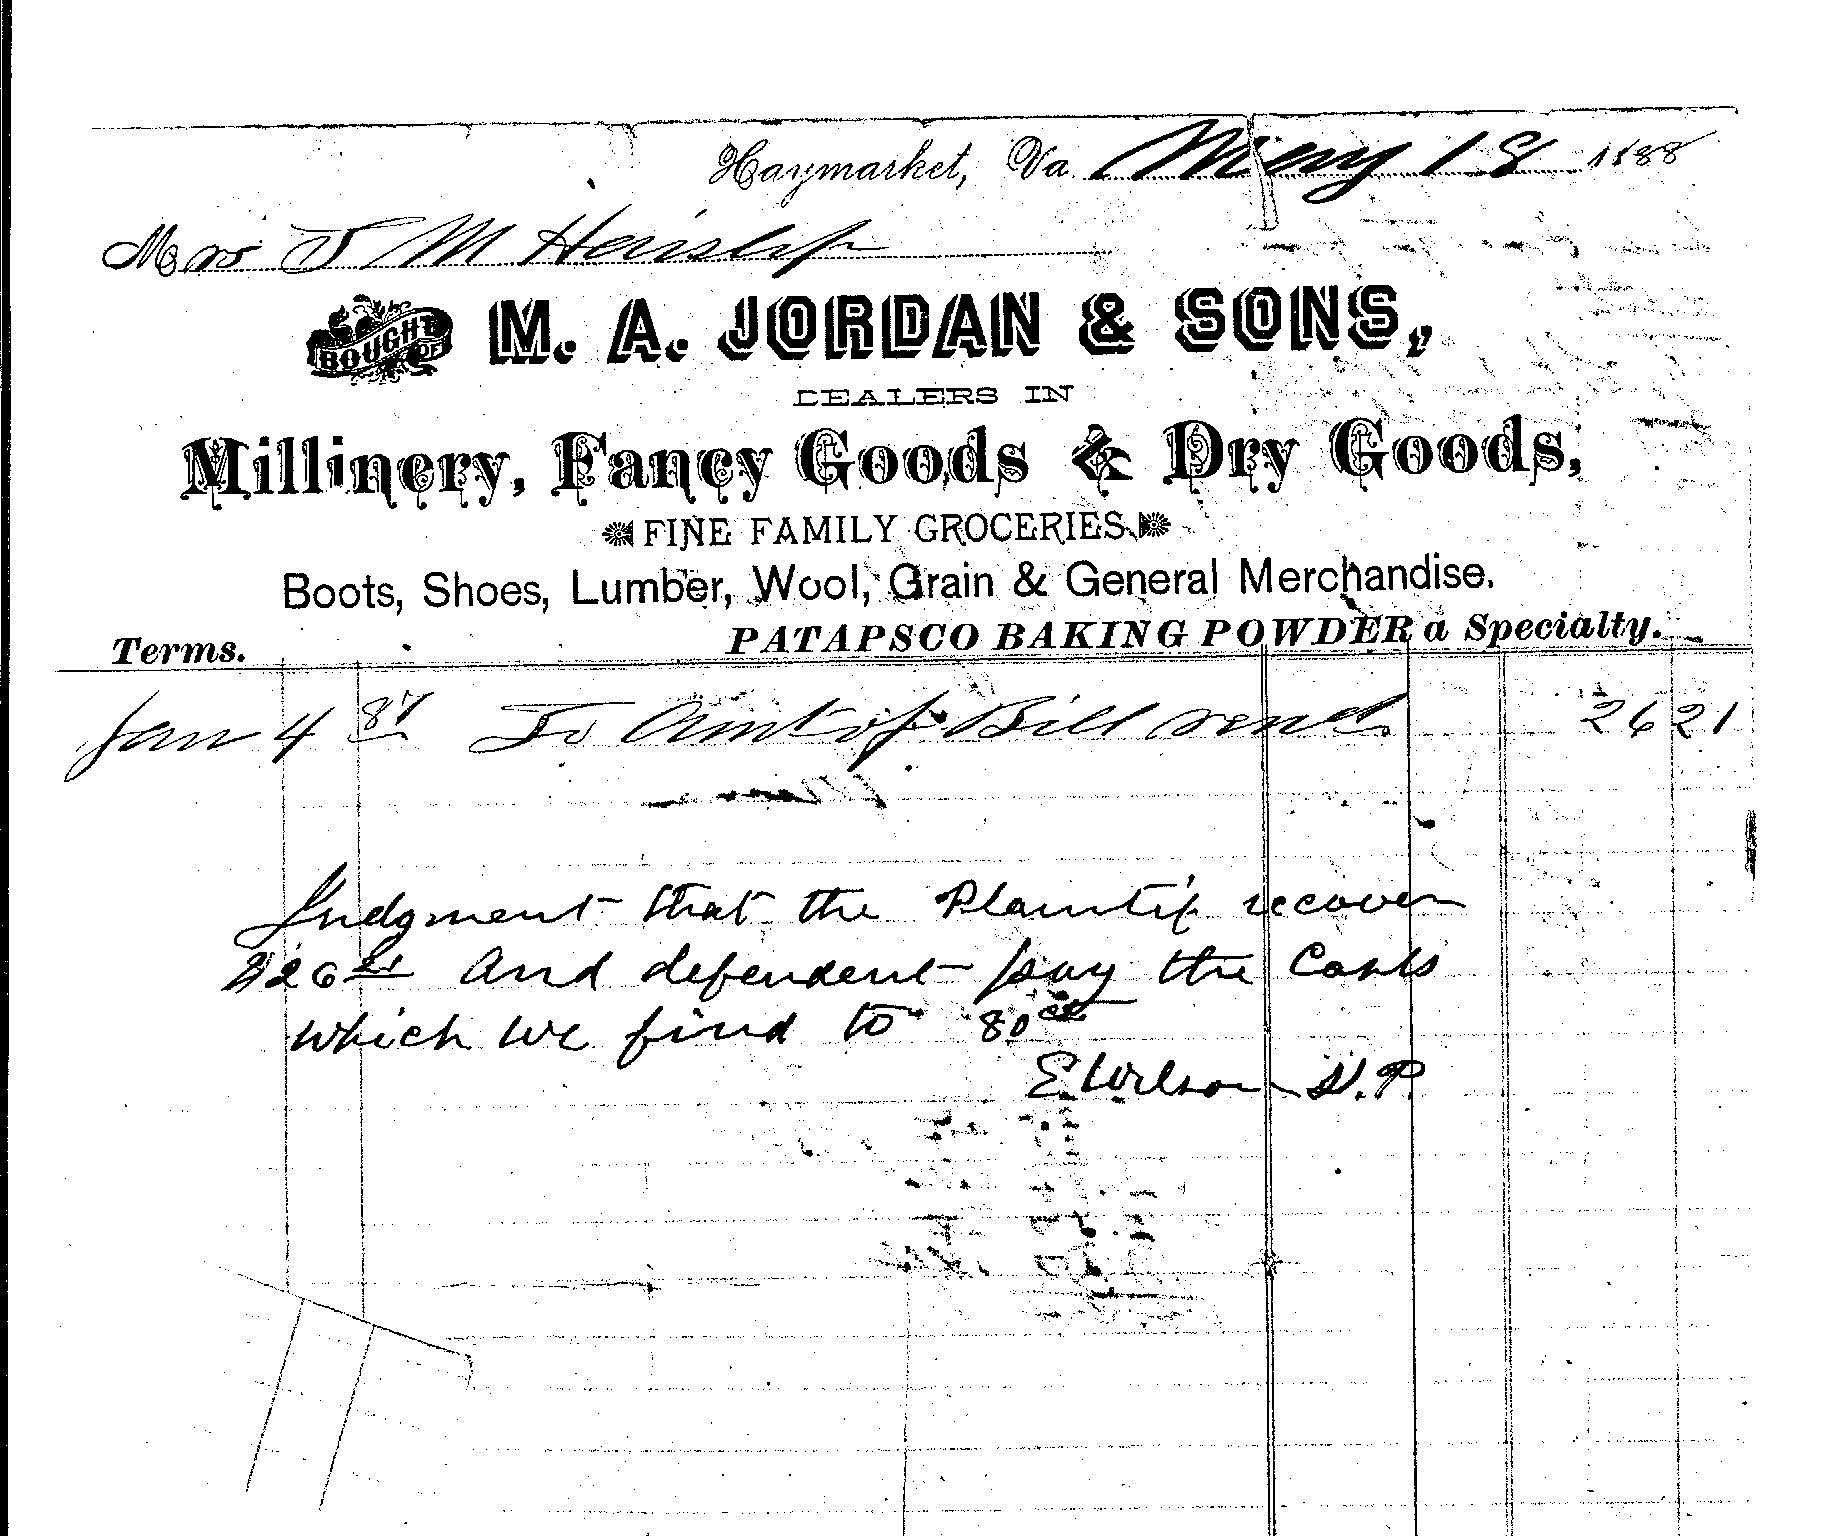 Haymarket, Va. May 18 1888
Mrs J M Heislip
BOUGHT OF M. A. JORDAN & SONS,
DEALERS IN
Millinery, Fancy Goods & Dry Goods,
FINE FAMILY GROCERIES.
Boots, Shoes, Lumber, Wool, Grain & General Merchandise.
Terms. PATAPSCO BAKING POWDER a Specialty.
Jan 4 87 To Amt of Bill rend. 26 21
Judgment that the Plaintif recover
$26 21 And defendent pay the Costs
which we find to 80 cts
E Wilson J.P.